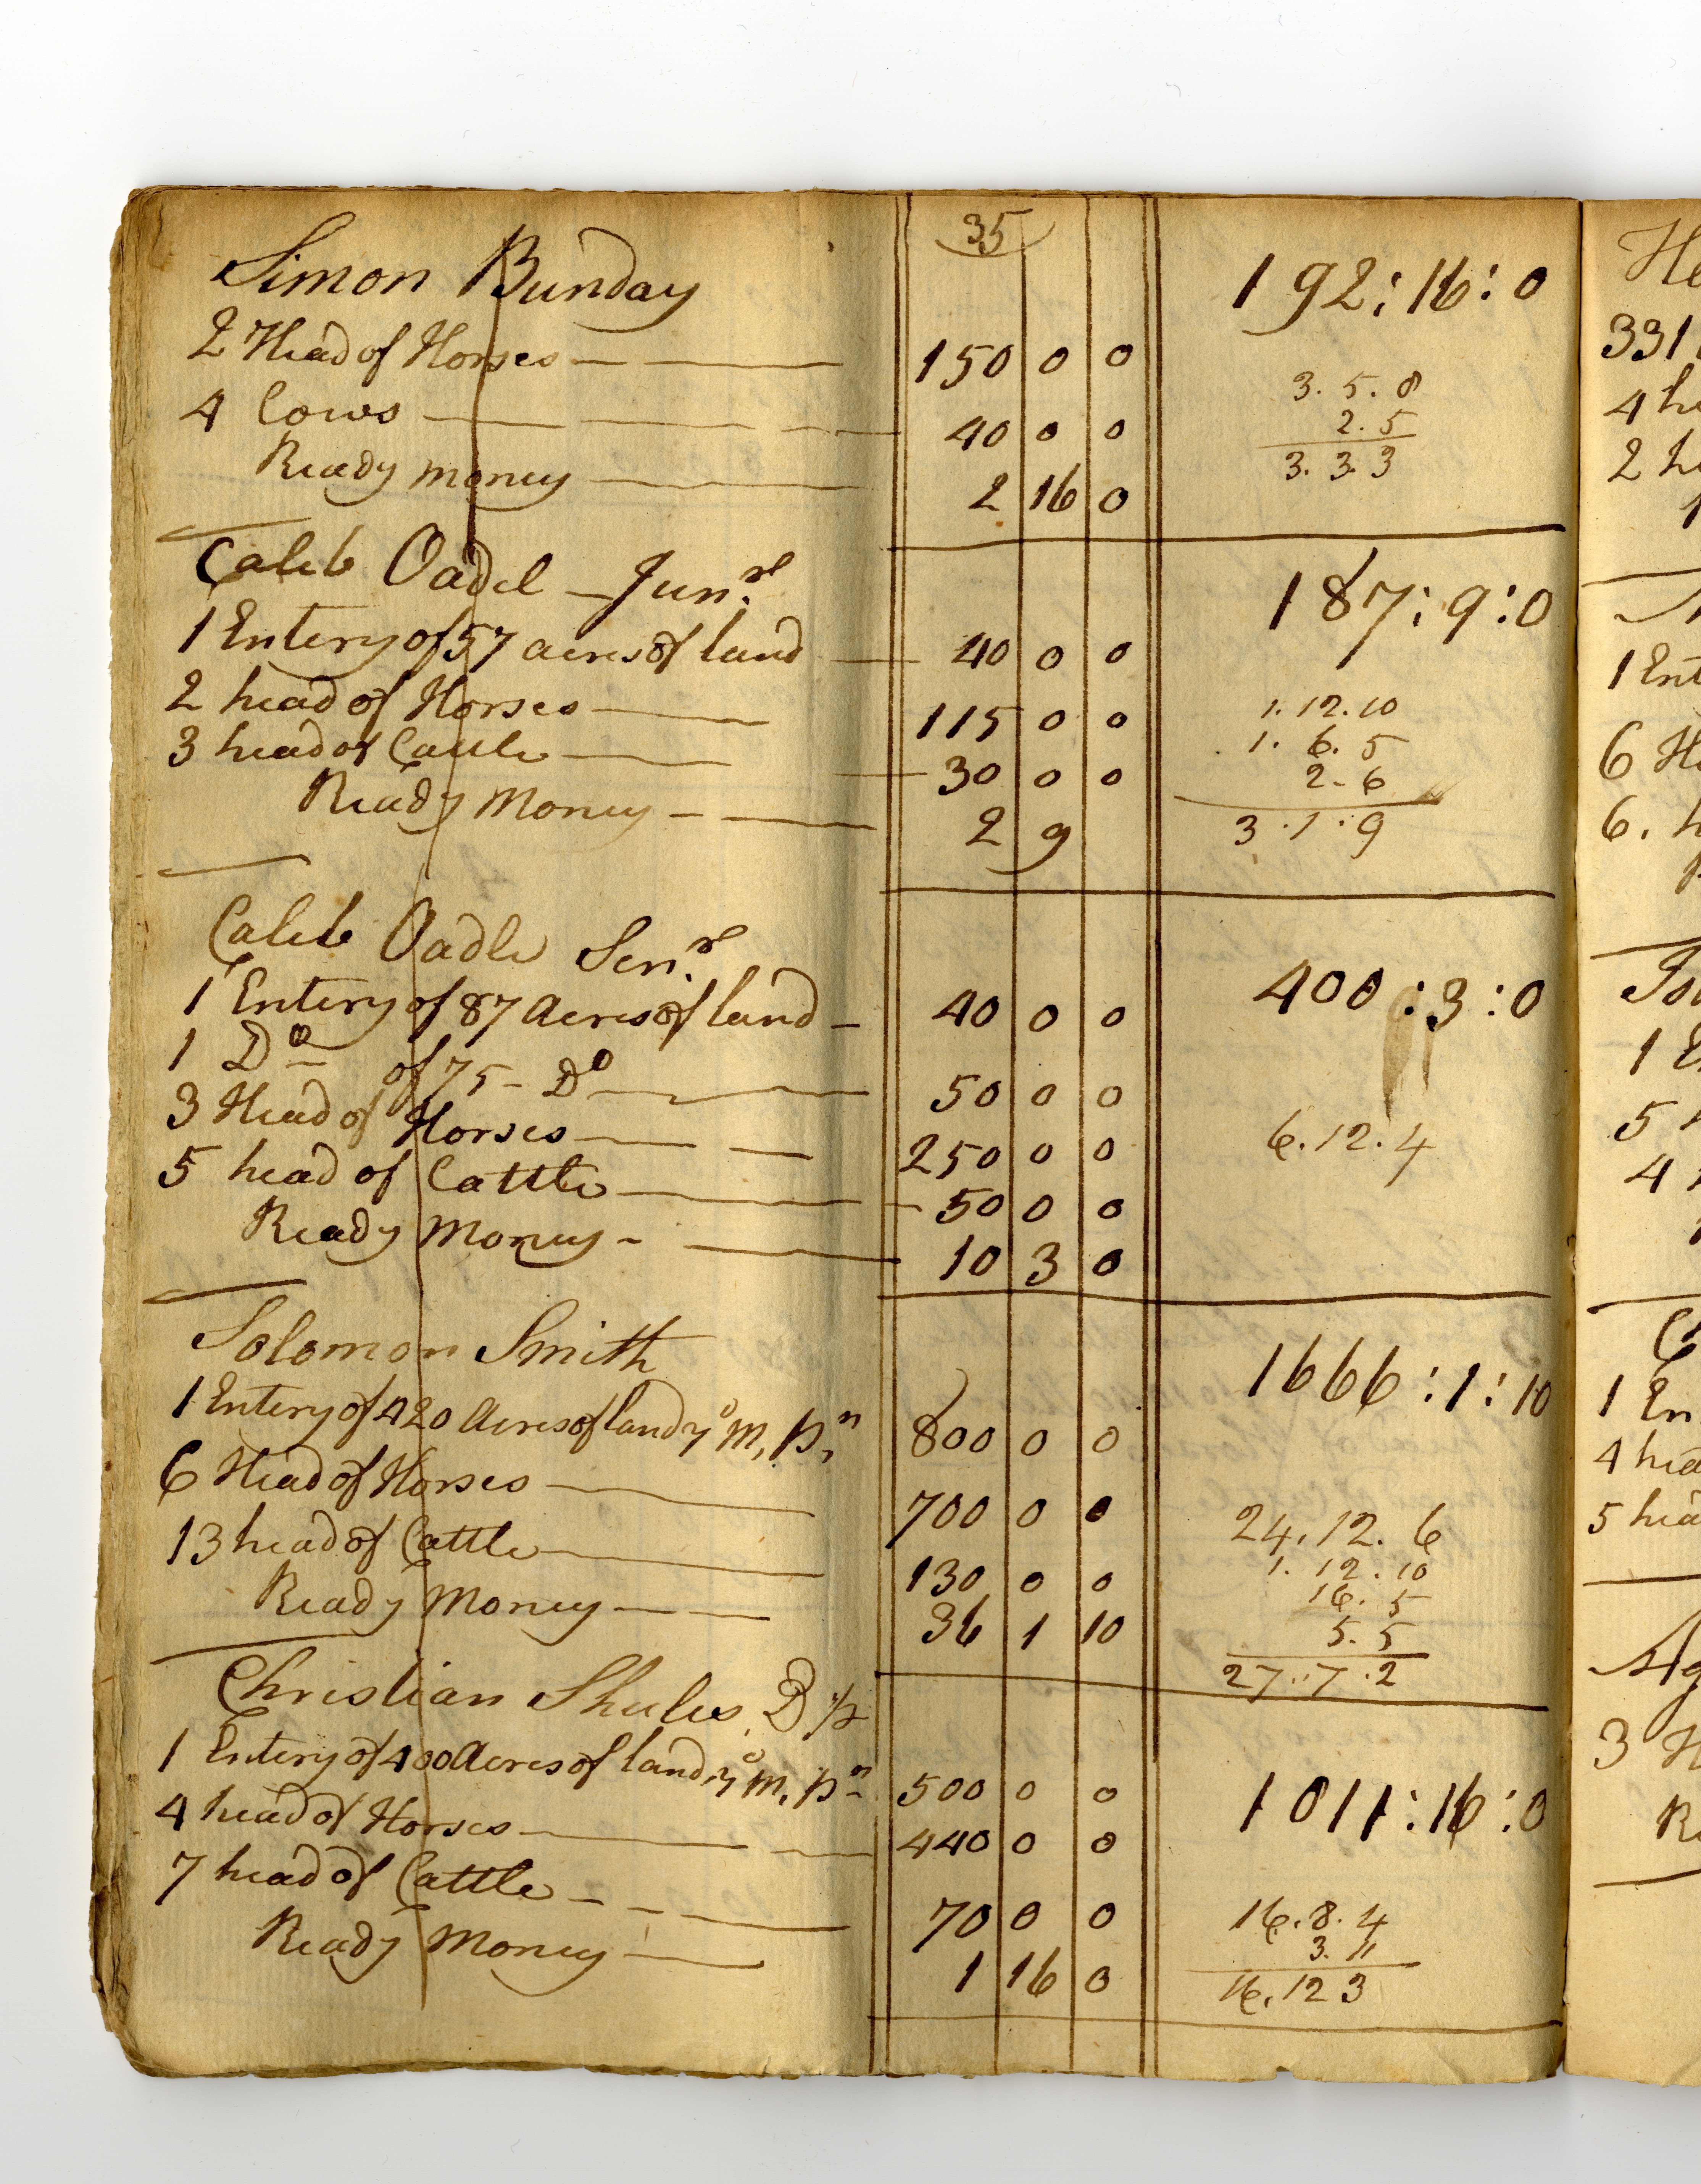 35
Simon Bunday 192:16:0
2 Head of Horses 150 0 0
4 Cows 40 0 0
Ready money 2 16 0
3. 5. 8
2. 5
3. 3. 3
Caleb Oadel Junr. 187:9:0
1 Entery of 57 acres of land 40 0 0
2 head of Horses 115 0 0
3 head of Cattle 30 0 0
Ready Money 2 9
1. 12. 10
1. 6. 5
2-6
3.1.9
Caleb Oadle Senr. 400:3:0
1 Entery of 87 Acres of land 40 0 0
1 Do of 75- Do 50 0 0
3 Head of Horses 250 0 0
5 head of Cattle 50 0 0
Ready Money 10 3 0
6.12.4
Solomon Smith 1666:1:10
1 Entery of 420 Acres of land yo M, pn 800 0 0
6 Head of Horses 700 0 0
13 head of Cattle 130 0 0
Ready Money 36 1 10
24.12.6
1. 12. 10
16. 5
5. 5
27.7.2
Christian Shules
1 Entery of 400 Acres of land, yo M, pn 500 0 0
1011:16:0
4 head of Horses 440 0 0
7 head of Cattle 70 0 0
Ready Money 1 16 0
16.8.4
3. 11
16.12 3
He
331
4 he
2 h
1 Ent
6 He
6. h
1 E
5 h
4
1 En
4 hea
5 hea
3 H
Re